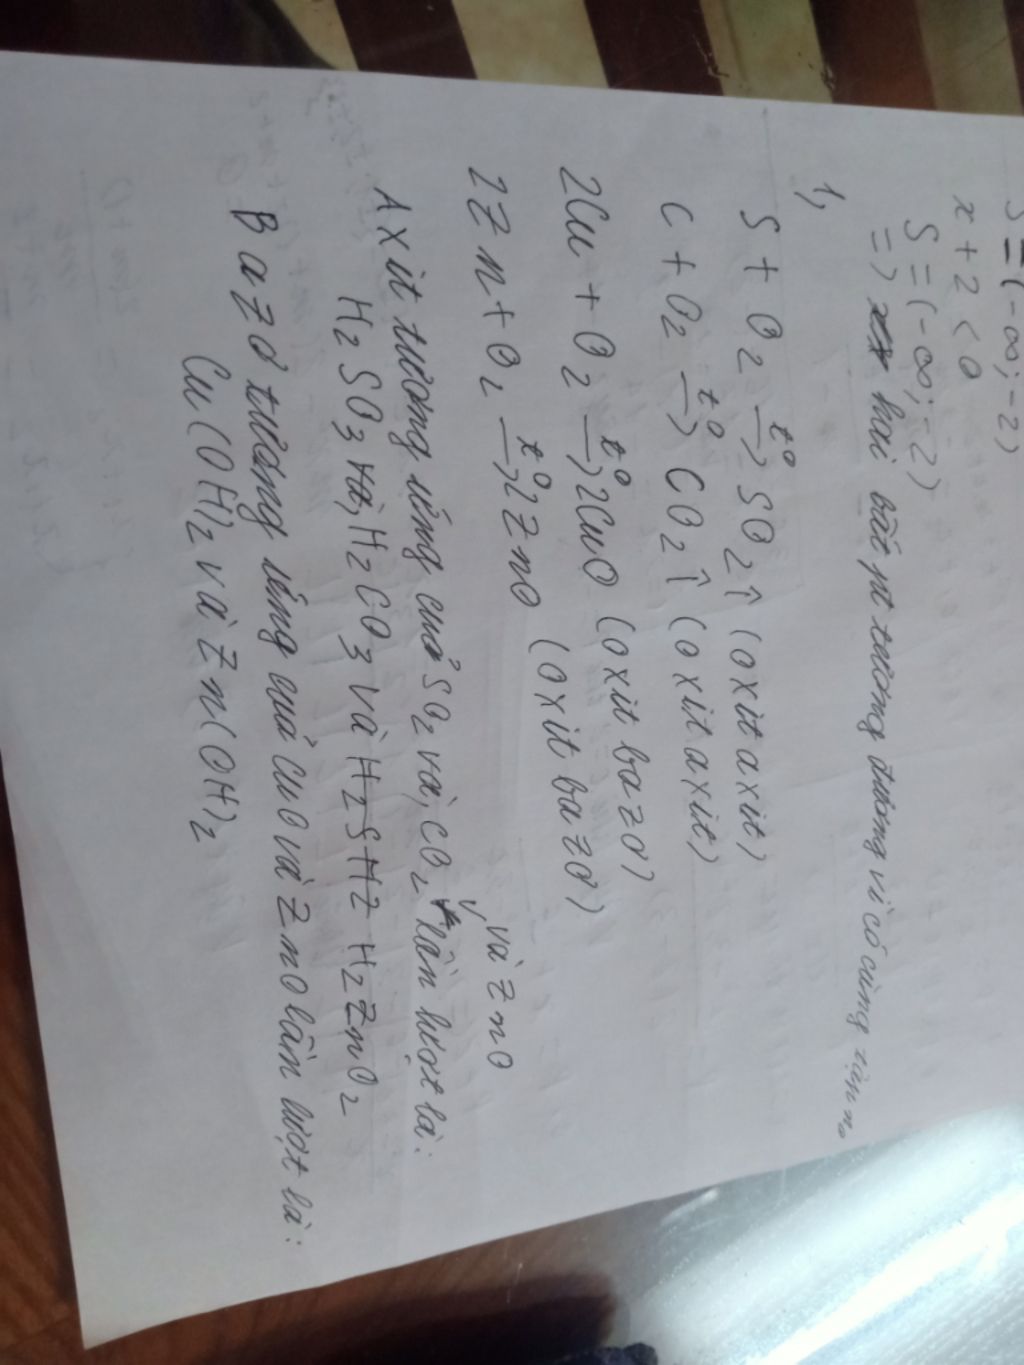 S = (-∞; -2)
x + 2 < 0
S = (-∞; -2)
=) hai bất pt tương đương vì có cùng tập no
1,
S + O2 —t°→ SO2↑ (oxit axit)
C + O2 —t°→ CO2↑ (oxit axit)
2Cu + O2 —t°→ 2CuO (oxit bazơ)
2Zn + O2 —t°→ 2ZnO (oxit bazơ)
và ZnO
Axit tương ứng của SO2 và, CO2 lần lượt là:
H2SO3 và, H2CO3 và H2SHZ H2ZnO2
Bazơ tương ứng quả CuO và ZnO lần lượt là:
Cu(OH)2 và Zn(OH)2